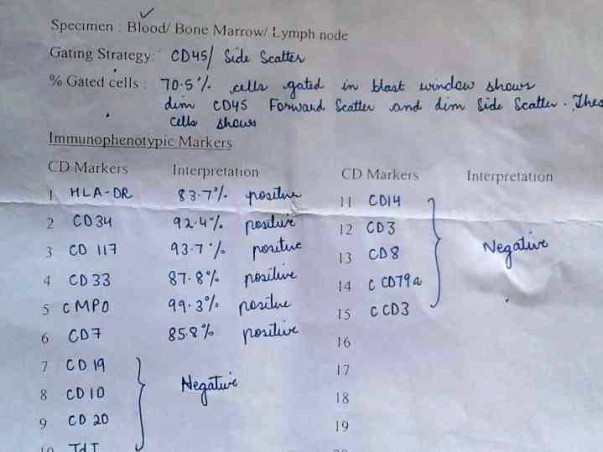 Specimen : Blood/ Bone Marrow/ Lymph node
Gating Strategy: CD45/ Side Scatter
% Gated cells : 70.5% cells gated in blast window shows
dim CD45 Forward Scatter and dim Side Scatter. Thes
cells shows
Immunophenotypic Markers
CD Markers Interpretation CD Markers Interpretation
1 HLA-DR 83.7% positive 11 CD14
2 CD34 92.4% positive 12 CD3
3 CD 117 93.7% positive 13 CD8 Negative
4 CD33 87.8% positive 14 C CD79a
5 C MPO 99.3% positive 15 C CD3
6 CD7 85.8% positive 16
7 CD19 17
8 CD10 Negative 18
9 CD 20 19
10 TdT